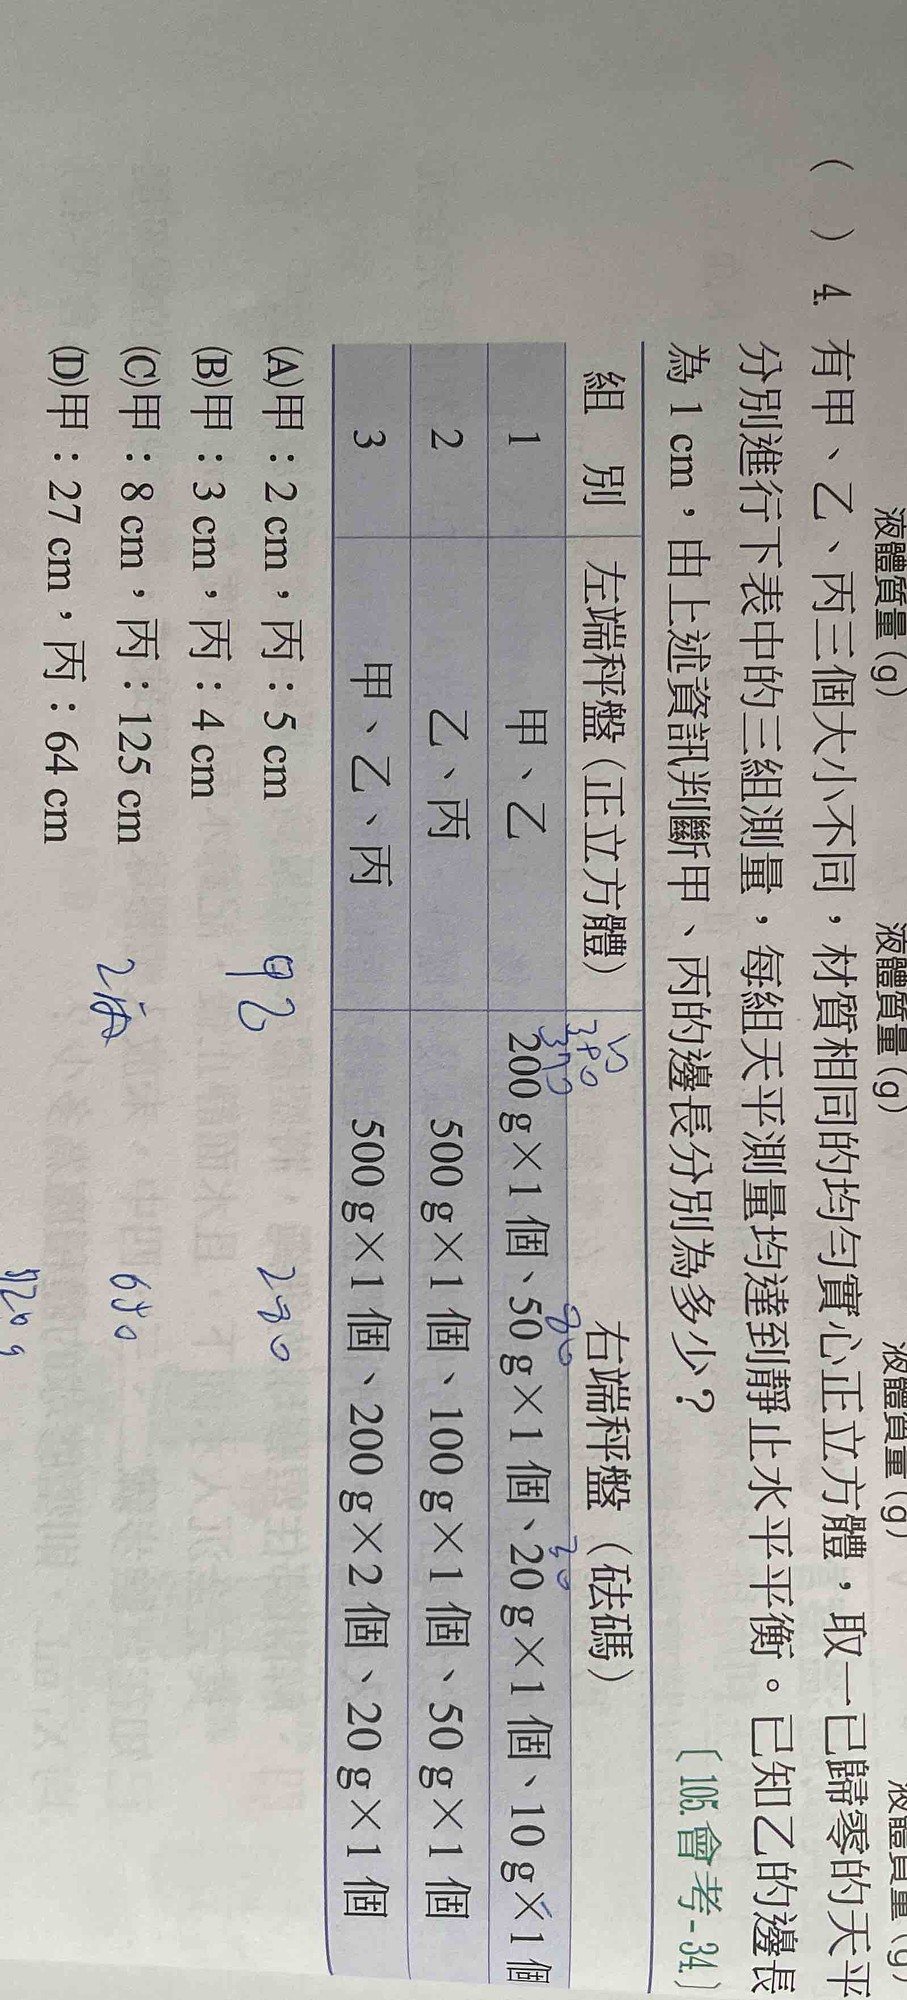 液體質量(g)　液體質量(g)　液體質量(g)　液體質量(g)
(　) 4. 有甲、乙、丙三個大小不同，材質相同的均勻實心正立方體，取一已歸零的天平
分別進行下表中的三組測量，每組天平測量均達到靜止水平平衡。已知乙的邊長
為 1 cm，由上述資訊判斷甲、丙的邊長分別為多少？〔105.會考-34.〕
組　別　左端秤盤(正立方體)　右端秤盤（砝碼）
1　甲、乙　200 g×1 個、50 g×1 個、20 g×1 個、10 g×1 個
2　乙、丙　500 g×1 個、100 g×1 個、50 g×1 個
3　甲、乙、丙　500 g×1 個、200 g×2 個、20 g×1 個
(A)甲：2 cm，丙：5 cm　甲乙　280
(B)甲：3 cm，丙：4 cm
(C)甲：8 cm，丙：125 cm　乙丙　650
(D)甲：27 cm，丙：64 cm